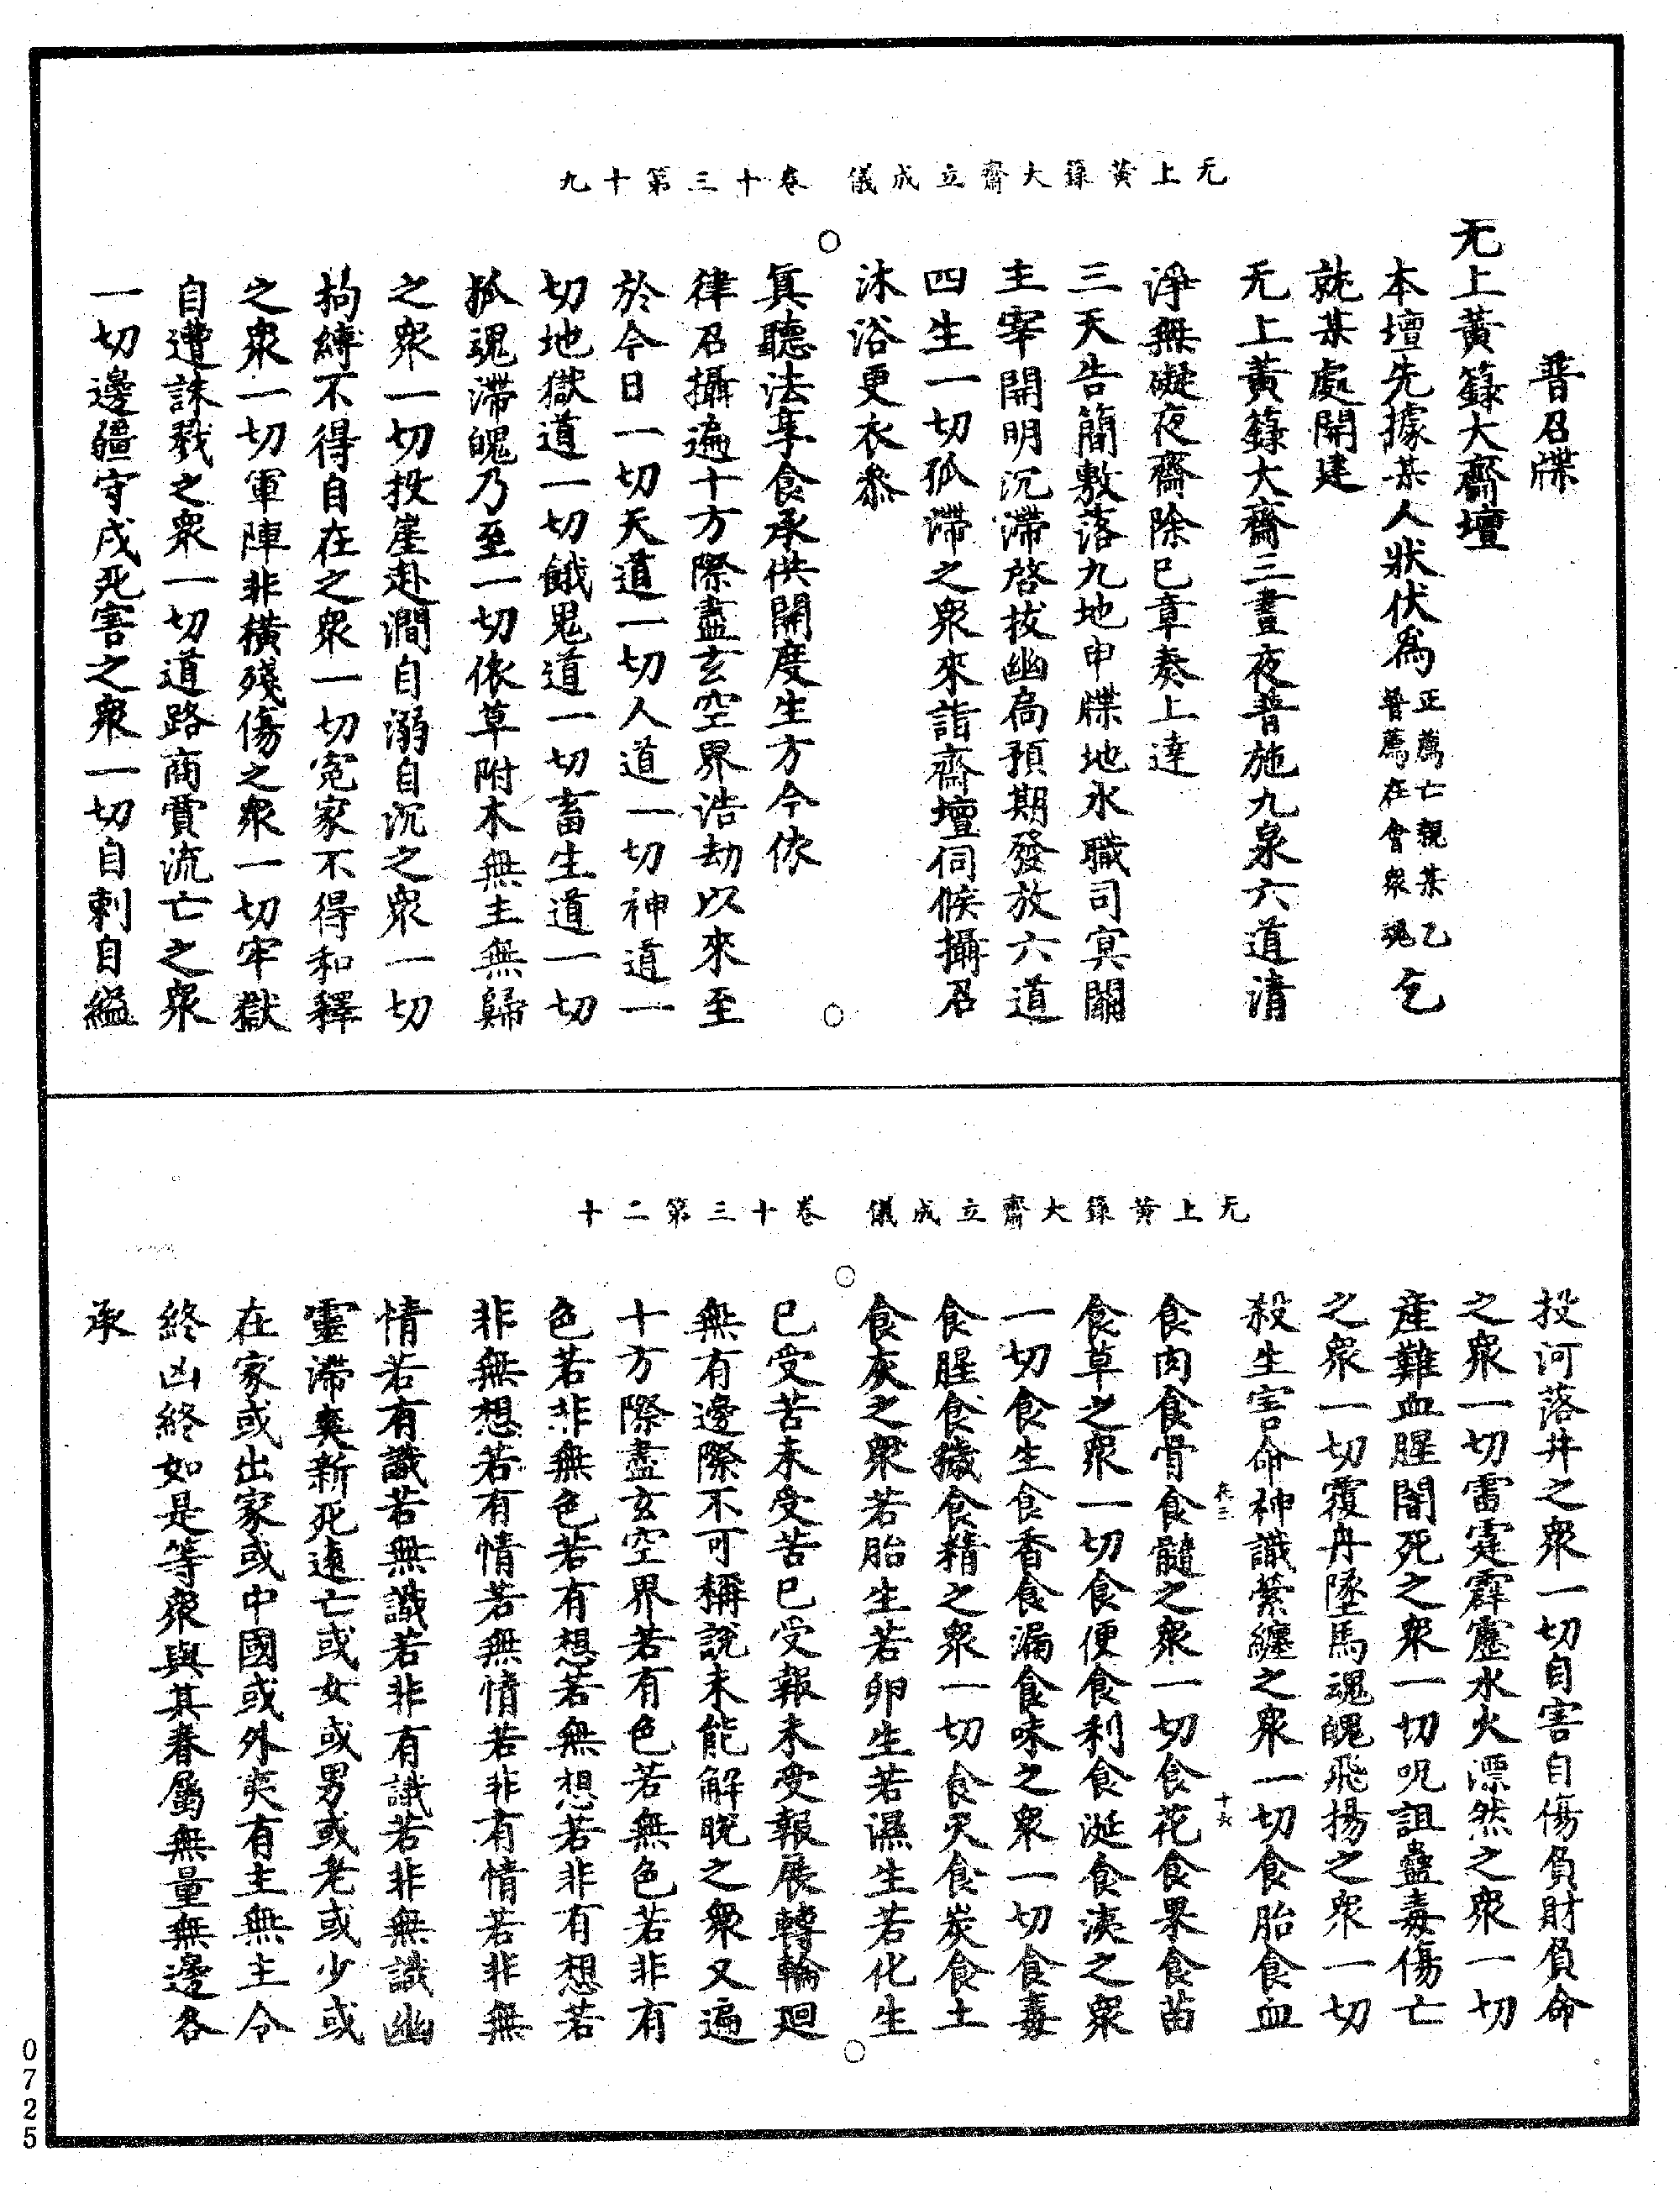 无上黃籙大齋立成儀　卷十三第十九
普召牒
无上黃籙大齋壇
本壇先據某人狀伏爲正薦亡親某乙普薦在會衆魂乞
就某處開建
无上黃籙大齋三晝夜普施九泉六道清
淨無礙夜齋除已章奏上達
三天告簡敷落九地申牒地水職司冥關
主宰開明沉滯啓拔幽扃預期發放六道
四生一切孤滯之衆來詣齋壇伺候攝召
沐浴更衣叅
眞聽法享食承供開度生方今依
律召攝遍十方際盡玄空界浩劫以來至
於今日一切天道一切人道一切神道一
切地獄道一切餓鬼道一切畜生道一切
孤魂滯魄乃至一切依草附木無主無歸
之衆一切投崖赴澗自溺自沉之衆一切
拘縛不得自在之衆一切冤家不得和釋
之衆一切軍陣非橫殘傷之衆一切牢獄
自遭誅戮之衆一切道路商賈流亡之衆
一切邊疆守戍死害之衆一切自刺自縊
无上黃籙大齋立成儀　卷十三第二十
投河落井之衆一切自害自傷負財負命
之衆一切雷霆霹靂水火漂然之衆一切
產難血腥闇死之衆一切呪詛蠱毒傷亡
之衆一切覆舟墜馬魂魄飛揚之衆一切
殺生害命神識縈纏之衆一切食胎食血
食肉食骨食髓之衆一切食花食果食苗
食草之衆一切食便食利食涎食洟之衆
一切食生食香食漏食味之衆一切食毒
食腥食穢食精之衆一切食灰食炭食土
食灰之衆若胎生若卵生若濕生若化生
已受苦未受苦已受報未受報展轉輪廻
無有邊際不可稱說未能解脫之衆又遍
十方際盡玄空界若有色若無色若非有
色若非無色若有想若無想若非有想若
非無想若有情若無情若非有情若非無
情若有識若無識若非有識若非無識幽
靈滯爽新死遠亡或女或男或老或少或
在家或出家或中國或外夷有主無主令
終凶終如是等衆與其眷屬無量無邊各
承
0725